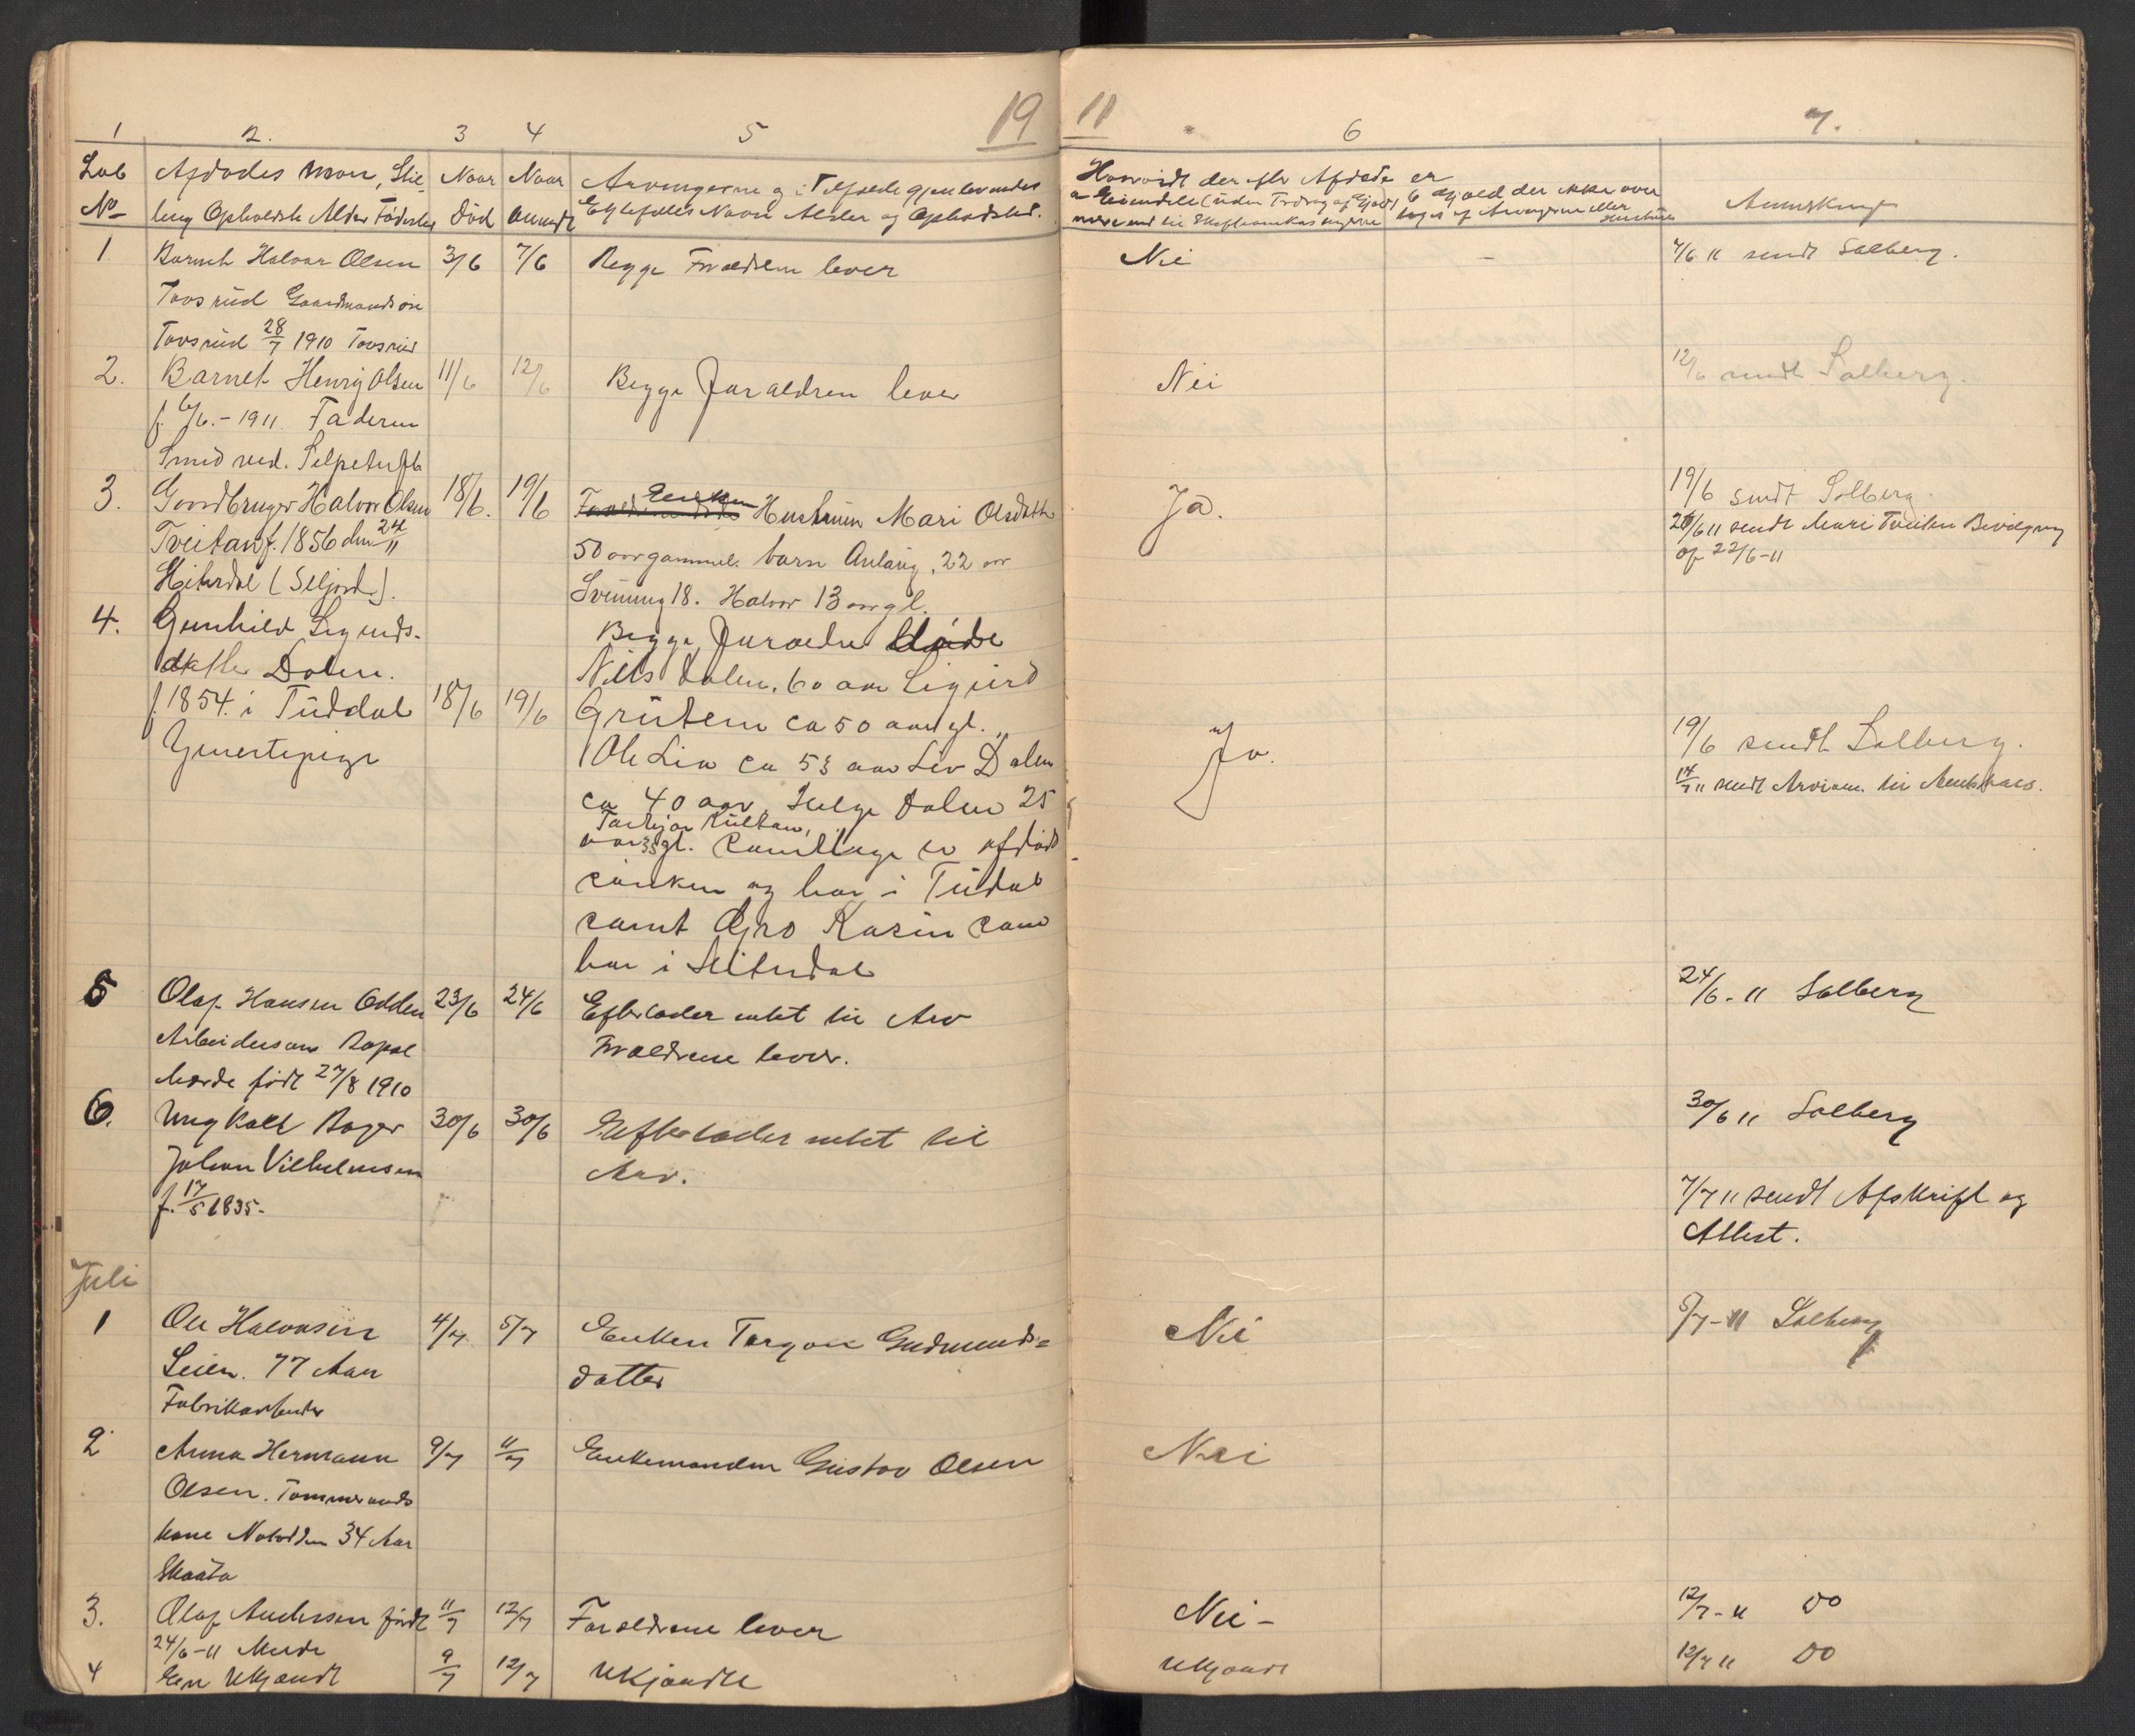 19 11
1 2. 3 4 5 6 7.
Løb Afdødes Navn, Stil- Naar Naar Arvingerne og i Tilfælde gjenlevendes Hvorvidt der efter Afdøde er
No ling Opholdsst. Alder Fødested død anmeldt Egtefælles Navn Alder og Opholdsted. a Eiendele (uden Fradrag af Gjæld) b Gjæld der ikke over Anmerkning
tages af Arvingerne eller
1 Barnet Halvor Olsen 3/6 7/6 Begge Forældrene lever Nei - 7/6 11 sendt Solberg.
Tovsrud Gaardmandsøn
Tovsrud 28/7 1910 Tovsrud
2. Barnet Henrij Olsen 11/6 12/6 Begge Foræeldren lever Nei 12/6 sendt Solberg.
f. 6/6.-1911. Faderen
Smed ved. Salpeterfb
3. Gaardbruger Halvor Olsen 18/6. 19/6 Enken Hustruen Mari Olsdatter Ja. 19/6 sendt Solberg.
Tveitan f. 1856 den 24/11 50 aar gammel. barn Aslaug, 22 aar 24/6 11 sendt Mari Tveitan Bevilgning
Hiterdal (Seljord). Svenung 18. Halvor 13 aar gl. af 22/6-11
4. Gunhild Sigurds- Begge Foræeldre døde
datter Dalen. Nils Dalen, 60 aar Sigurd
f. 1854. i Tuddal 18/6 19/6 Gruten ca 50 aar gl. Ja. 19/6 sendt Solberg.
Tjenestepige Ole Lia ca 53 aar Liv Dalen 14/7 11 sendt Arvean. til
ca 40 aar, Helge Dalen 25
Torbjør Kultan,
aar 35 gl. samtlige er afdødt
søsken og bor i Tudal
samt Gro Kasin som
bor i Hiterdal
5 Olaf Hansen Odden 23/6 24/6 Efterlader intet til Arv 24/6-11 Solberg
Arbeidersøn Forældrene lever.
født 27/8 1910
6. Ungkarl Bager 30/6 30/6 Efterlader intet til 30/6 11 Solberg
Johan Vilhelmsen Arv.
f. 17/5 1835. 7/7 11 sendt Afskrift og
Attest.
Juli
1 Ole Halvorsen 4/7. 5/7 Enken Torgon Gudmunds= Nei 5/7-11 Solberg
Leien. 77 Aar datter
Fabrikarbeider
2 Anna Hermann 9/7 11/7 Enkemanden Gustav Olsen Nei
Olsen. Tømmermands
kone Notodden 34 Aar
Skaata
3. Olaf Andersen født 11/7 12/7 Forældrene lever Nei- 12/7-11 DO
24/6-11
4 En Ukjendt 9/7 12/7 Ukjendte Ukjendt 12/7 11 DO